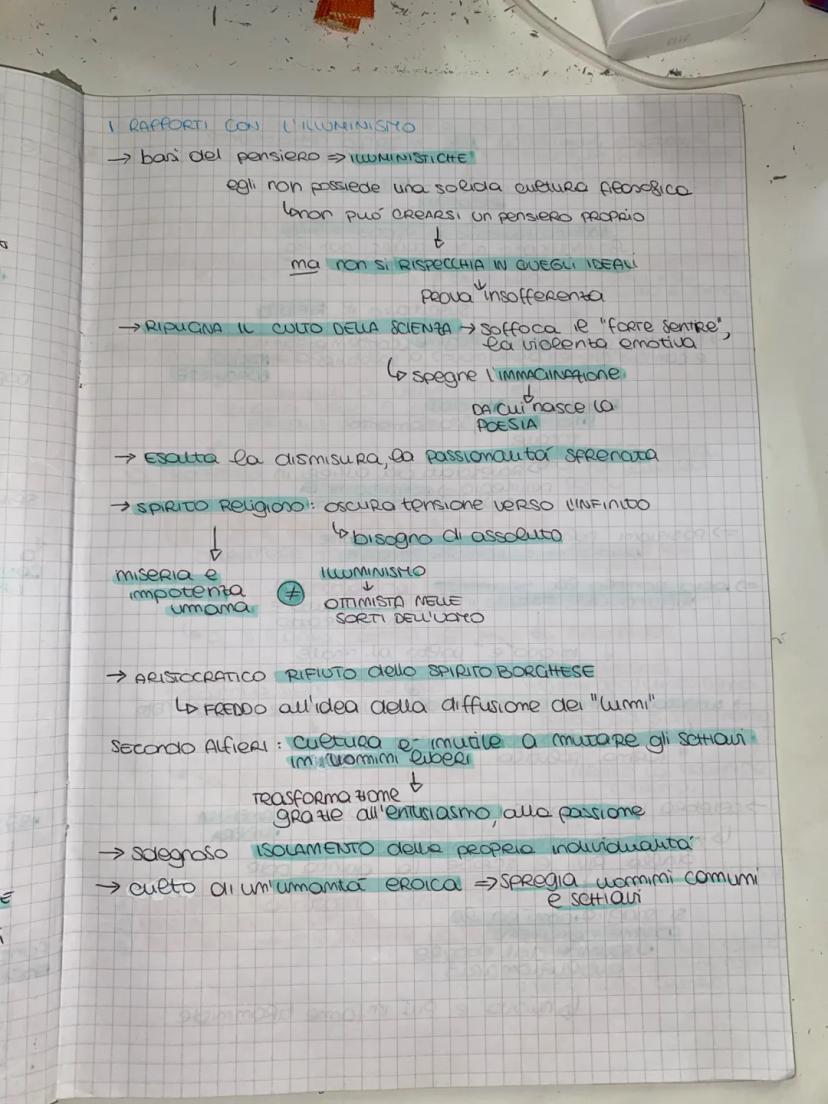 I RAPPORTI CON L'ILLUMINISMO
→ basi del pensiero ⇒ ILLUMINISTICHE
egli non possiede una solida cultura filosofica
↳ non può CREARSI UN PENSIERO PROPRIO
↓
ma non si RISPECCHIA IN QUEGLI IDEALI
↓
PROVA insofferenza
→ RIPUGNA IL CULTO DELLA SCIENZA → soffoca il "forte sentire",
la violenta emotiva
↳ spegne l'IMMAGINAZIONE
↓
DA CUI nasce la
POESIA
→ ESALTA la dismisura, la passionalità SFRENATA
→ SPIRITO RELIGIOSO: OSCURA tensione verso l'INFINITO
↳ bisogno di assoluto
↓
miseria e
impotenza
umana
≠
ILLUMINISMO
↓
OTTIMISTA NELLE
SORTI DELL'UOMO
→ ARISTOCRATICO RIFIUTO dello SPIRITO BORGHESE
↳ FREDDO all'idea della diffusione dei "lumi"
SECONDO Alfieri: cultura è inutile a mutare gli schiavi
in uomini liberi
↓
TRASFORMAZIONE
GRAZIE all'entusiasmo, alla passione
→ sdegnoso ISOLAMENTO della propria individualità
→ culto di un'umanità EROICA ⇒ SPREGIA uomini comuni
e schiavi